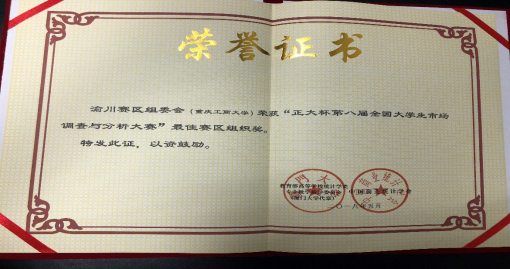 荣誉证书
渝川赛区组委会（重庆工商大学）荣获“正大杯第八届全国大学生市场
调查与分析大赛”最佳赛区组织奖。
特发此证，以资鼓励。
教育部高等学校统计学类
中国商业统计学会
（厦门大学代章）
二〇一八年五月